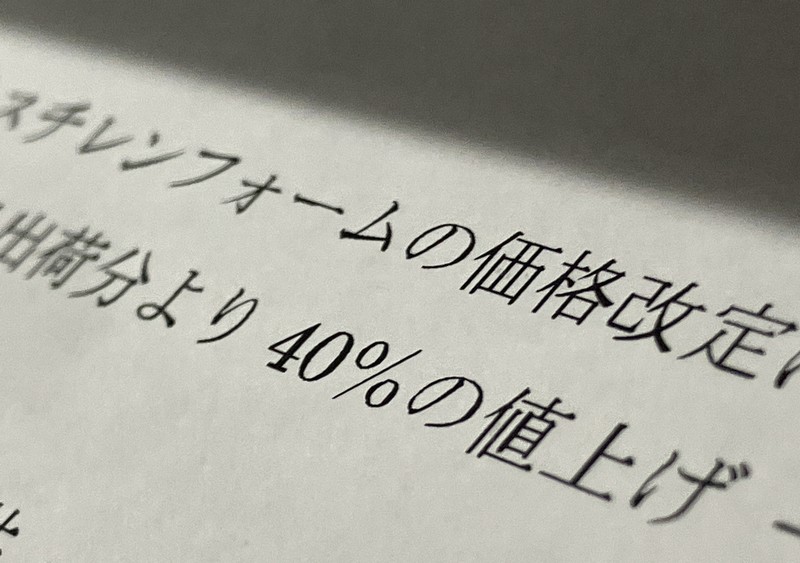 スチレンフォームの価格改定に
出荷分より 40%の値上げ